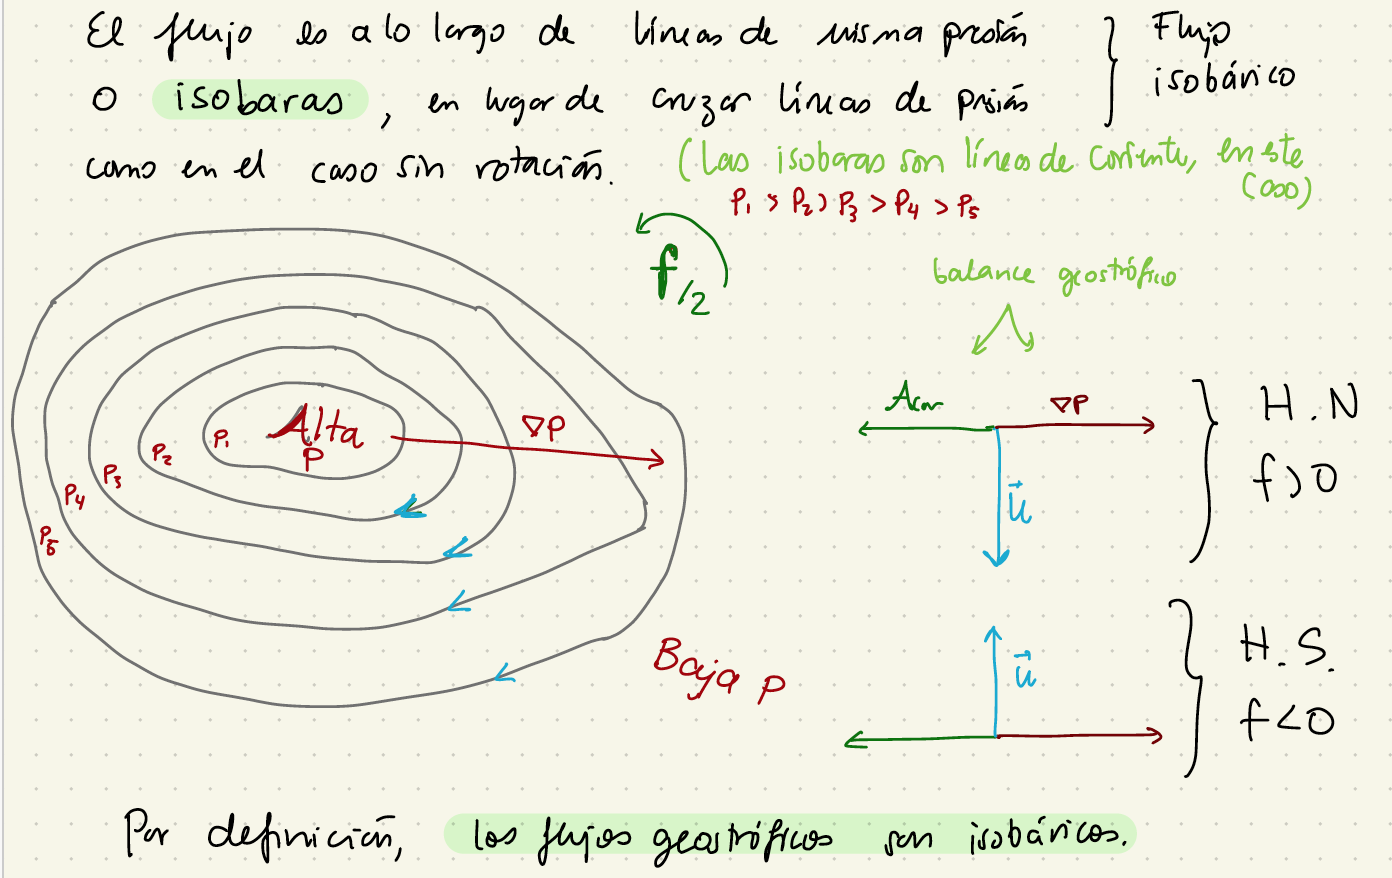 El flujo es a lo largo de líneas de misma presión
o isobaras, en lugar de cruzar líneas de presión
como en el caso sin rotación.
} Flujo
isobárico
(Las isobaras son líneas de corriente, en este
caso)
P₁ > P₂ > P₃ > P₄ > P₅
f/2
balance geostrófico
Alta
P
P₁
P₂
P₃
P₄
P₅
∇P
Acor
∇P
u⃗
H.N
f>0
Baja P
u⃗
H.S.
f<0
Por definición, los flujos geostróficos son isobáricos.